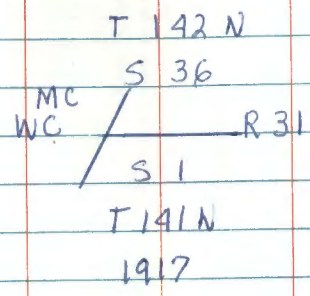 T 142 N
S 36
MC
WC R 31
S 1
T 141 N
1917